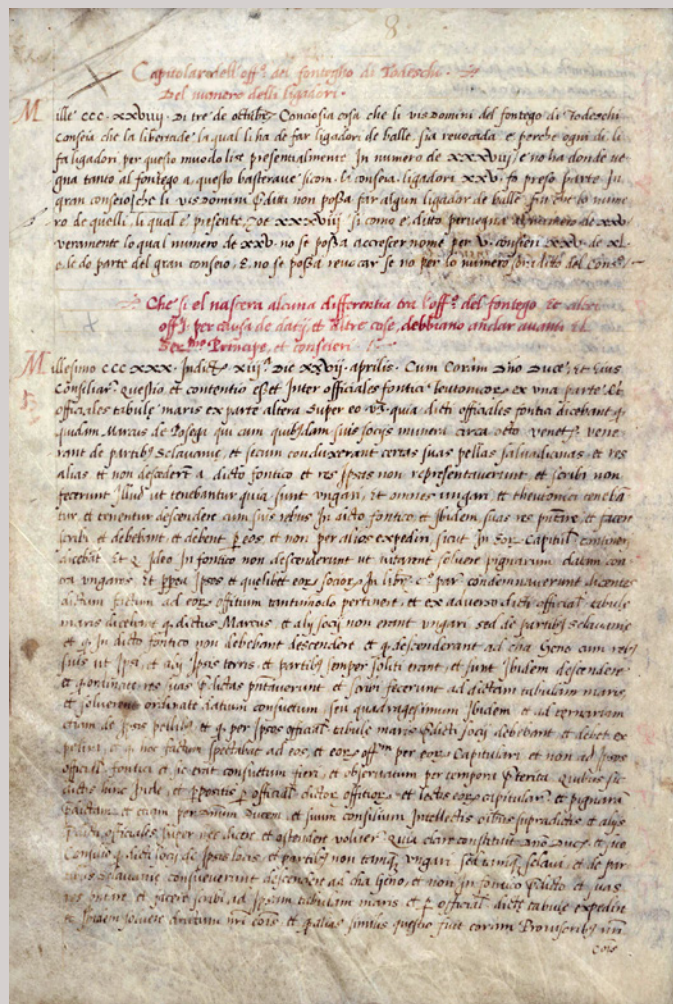 8
Capitolare dell'off.º del fontegho di Todeschi.
Del numero delli ligadori.
Mille CCC. XXVIIII. Di tre de octubrẽ. Conciosia cosa che li visDomini del fontego di Todeschi
Conseia che la libertade la qual li ha de far ligadori de balle, sia revocada e perche ogni dì li
fa ligadori, per questo muodo li se presentialmente In numero de XXXVIII, e no ha donde ve
gna tanto al fontego a questo basterave sicom li conseia. ligadori XXV. fo preso parte In
gran conseio che li visDomini Pditti non possa far algun ligador de balle, fin che lo nume
ro de quelli, li qual e presente, zoe XXXVIII si como e ditto pervegna al numero de XXV
veramente lo qual numero de XXV. no se possa accrescer nome per V. consieri XXV. de XL
e le do parte del gran conseio, E no se possa revocar se no per lo numero soraditto del Cons.
Che si el nascera alcuna differentia tra l'off.º del fontego et altri
off.j per causa de datij, et altre cose, debbiano andar avanti el
Ser.mo Principe, et consieri.
Millesimo CCC XXX. Indict. XIII.a Die XXVII. aprilis. Cum Coram Dño Duce, et Eius
Consiliar. Questio et contentio esset Inter officiales fontici teutonicor ex una parte, Et
officiales tabule maris ex parte altera super eo quia dicti officiales fontici dicebant q.
quidam Marcus de Posega qui cum quibusdam suis socijs
rant de partibus Sclavanie, et secum conduxerant certas suas pelles salvadicinas et res
alias et non descenderent a dicto fontico et res Ipsas non representaverunt, et scribi non
fecerunt Illud ut tenebantur quia sunt ungari, Et omnes ungari et theutonici teneban
tur, et tenentur descendere cum suis rebus In dicto fontico et Ibidem suas res pntare et facere
scribi et debebant et debent p eos, et non per alios expediri, sicut In eor Capitul. contineri
dicebat. Et Ideo In fontico non descenderunt ut vitarent solvere pignarum datum con
tra ungaros, Et Ipsos et quelibet eor socior condemnaverunt dicentes
dictum factum ad eor offitium tantumodo pertinere, et ex adverso dicti official. tabule
maris dicebant q. dictus Marcus, et alij socij non erant ungari sed de partibus Sclavanie
et q. In dicto fontico non debebant descendere et q. descenderant ad cha Geno cum rebus
suis ut Ipsi, et alij Ipsis terris, et partibus semper soliti erant, et sunt Ibidem descendere
et q. ordinate res suas Pdictas pntaverunt et scribi fecerunt ad dictam tabulam maris
et solverunt ordinate datium consuetum seu quadragesimum Ibidem et ad ternariam
de Ipsis pellibus et q. per Ipsos official. tabule maris Pdicti socij debebant et debet ex
pediri, et q. hoc factum spectabat ad eos, et eor off.m per eor Capitulari, et non ad Ipsos
official. fontici et sic erat consuetum fieri, et observatum per tempora Pterita. Quibus sic
dictis hinc Inde, et ppositis p official. dictor offitior et lectis eor capitular. et pignarum
Pdictam et etiam per dnum Ducem, et suum consilium Intellectis oibus supradictis et alijs
Pdicti officiales Inter nes dicere et ostendere voluer. Quia clare constitit Dño Duci, et suo
Consilio q. dicti socij de Ipsis locis, et partibus non tamq. ungari sed tamq. sclavi, et de par
tibus Sclavanie consueverunt descendere ad cha Geno, et non In fontico Pdicto et suas
res pntare et facere scribi ad Ipsam tabulam maris et p official. dicte tabule expedire
et Ibidem solvere drictum nri cois et q. alias similis questio fuit coram Provisoribus nri
cois